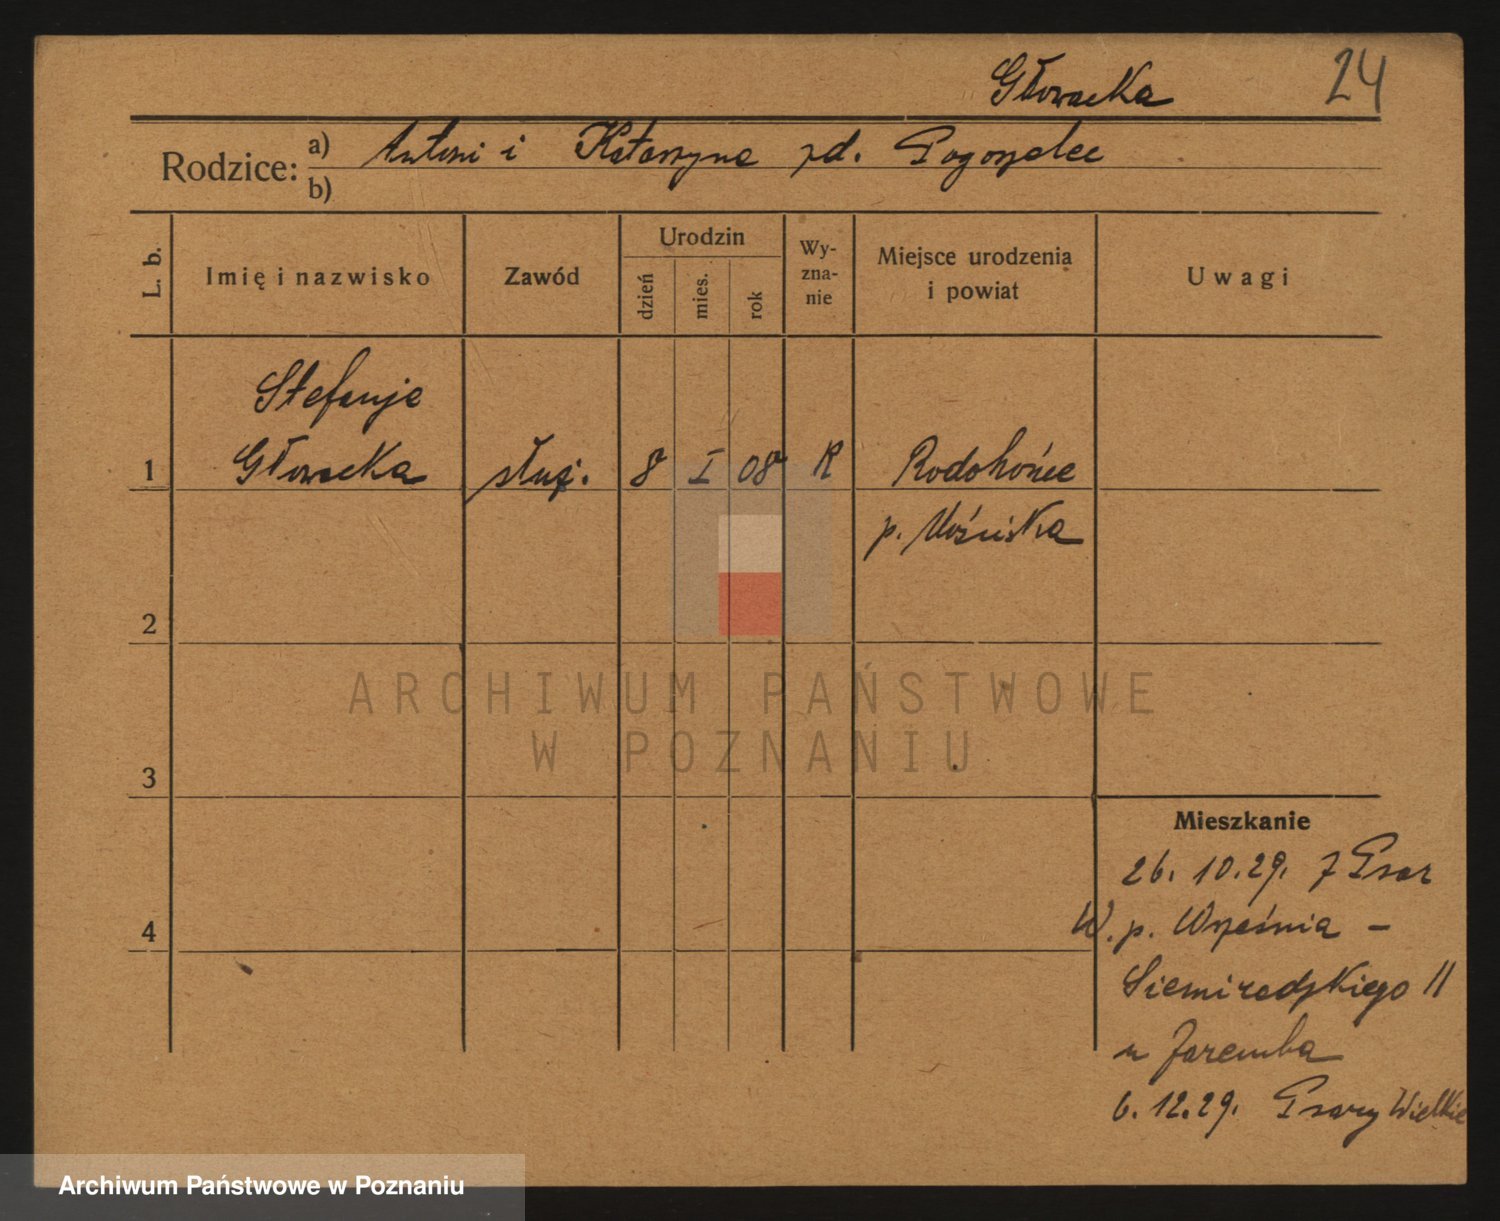 Głowacka 24
Rodzice: a) Antoni i Katarzyna zd. Pogorzelec
b)
L. b. Imię i nazwisko Zawód Urodzin dzień mies. rok Wy-zna-nie Miejsce urodzenia i powiat Uwagi
Stefanja
1 Głowacka służ. 8 I 08 R Rodohońce
p. Mościska
2
ARCHIWUM PAŃSTWOWE
W POZNANIU
3
Mieszkanie
26. 10. 29. z Psar
4 W. p. Września –
Siemiradzkiego 11
u Zaremba
6. 12. 29. Psary Wielkie
Archiwum Państwowe w Poznaniu